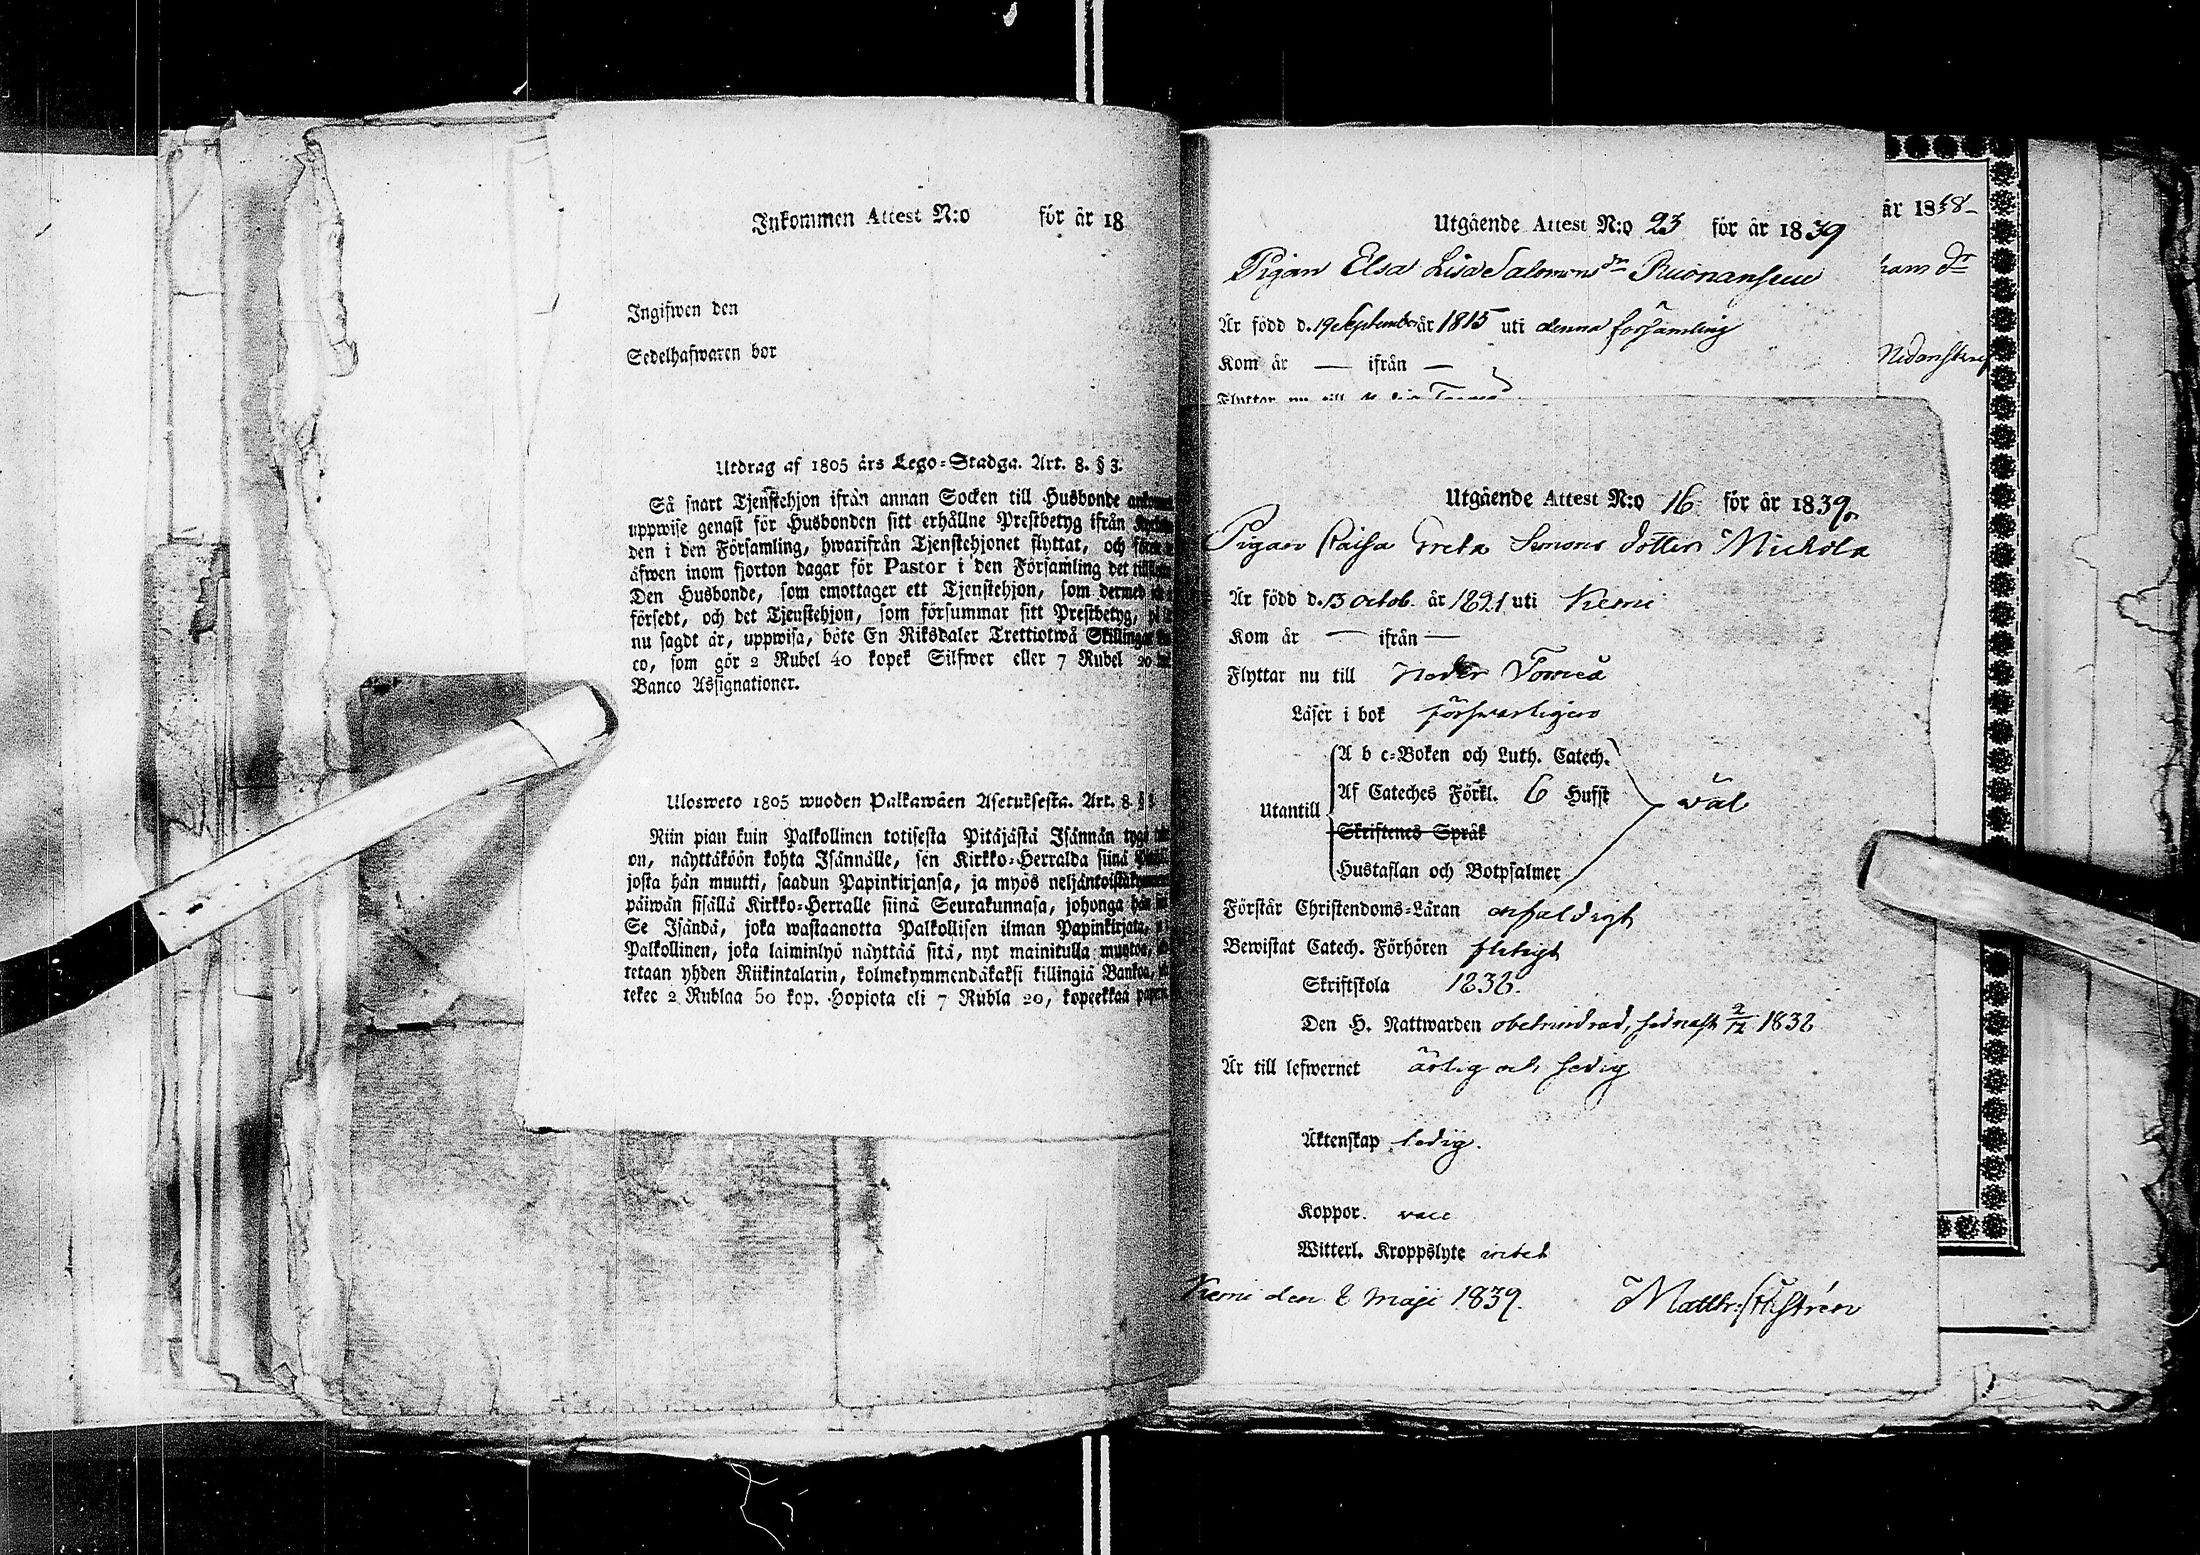 Inkommen Attest N:o för år 18
Ingifwen den
Sedelhafwaren bor
Utdrag af 1805 års Lego-Stadga. Art. 8. § 3.
Så snart Tjenstehjon ifrån annan Socken till Husbonde
uppwise genast för Husbonden sitt erhållne Prestbetyg ifrån
den i den Församling, hwarifrån Tjenstehjonet flyttat, och
äfwen inom fjorton dagar för Pastor i den Församling det
Den Husbonde, som emottager ett Tjenstehjon, som dermed
försedt, och det Tjenstehjon, som försummar sitt Prestbetyg,
nu sagdt är, uppwisa, böte En Riksdaler Trettiotwå Skillingar
co, som gör 2 Rubel 40 kopek Silfwer eller 7 Rubel 20
Banco Assignationer.
Ulosweto 1805 wuoden Palkawäen Asetuksesta. Art. 8 §
Niin pian kuin Palkollinen totisesta Pitäjästä Isännän tygö
on, näyttäköön kohta Isännälle, sen Kirkko-Herralda siinä
josta hän muutti, saadun Papinkirjansa, ja myös
päiwän sisällä Kirkko-Herralle siinä Seurakunnasa, johonga
Se Isändä, joka wastaanotta Palkollisen ilman Papinkirjata,
Palkollinen, joka laiminlyö näyttää sitä, nyt mainitulla muotoa,
tetaan yhden Riikintalarin, kolmekymmendäkaksi killingiä Bankoa,
tekee 2 Rublaa 50 kop. Hopiota eli 7 Rubla 20, kopeekkaa
år 1838
Utgående Attest N:o 23 för år 1839
Pigan Elsa Lisa Salomons dr
Är född d. 19 September år 1815 uti denna församling
Kom år — ifrån —
Flyttar nu till
Utgående Attest N:o 16 för år 1839.
Pigan Caisa Greta Simons dotter Mickola
Är född d. 13 octob. år 1821 uti Kemi
Kom år — ifrån —
Flyttar nu till Neder Torneå
Läser i bok försvarligen
A b c-Boken och Luth. Catech.
Utantill Af Cateches Förkl. 6 Hufst väl
Skriftenes Språk
Hustaflan och Botpsalmer
Förstår Christendoms-Läran enfaldigt
Bewistat Catech. Förhören flitigt
Skriftskola 1838.
Den H. Nattwarden obehindrad, sednast 2/12 1838
Är till lefwernet ärlig och sedig
Äktenskap ledig.
Koppor. vacc
Witterl. Kroppslyte intet
Kemi den 8 Maji 1839. Matth: Castrén